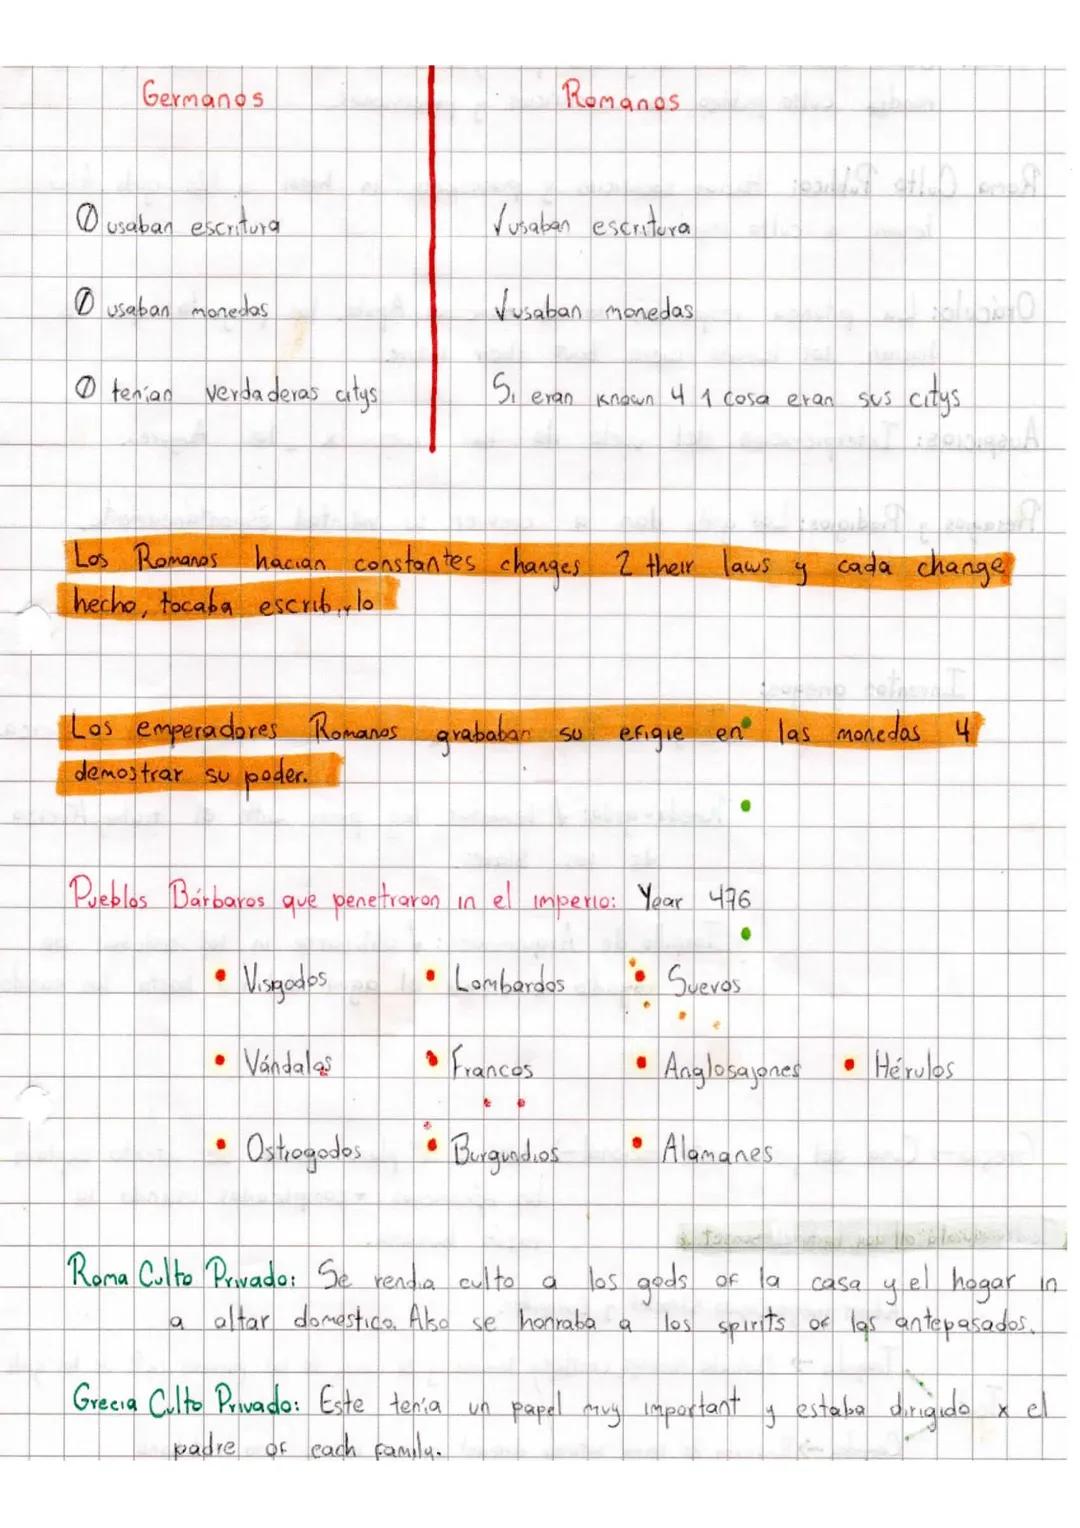 Germanos Romanos
Ø usaban escritura √usaban escritura
Ø usaban monedas √usaban monedas
Ø tenían verdaderas citys Si eran known 4 1 cosa eran sus citys
Los Romanos hacían constantes changes 2 their laws y cada change
hecho, tocaba escribirlo
Los emperadores Romanos grababan su efigie en las monedas 4
demostrar su poder.
Pueblos Bárbaros que penetraron in el imperio: Year 476
• Visigodos • Lombardos • Suevos
• Vándalos • Francos • Anglosajones • Hérulos
• Ostrogodos • Burgundios • Alamanes
Roma Culto Privado: Se rendía culto a los gods of la casa y el hogar in
a altar domestico. Also se honraba a los spirits of las antepasados.
Grecia Culto Privado: Este tenía un papel muy important y estaba dirigido x el
padre of each family.